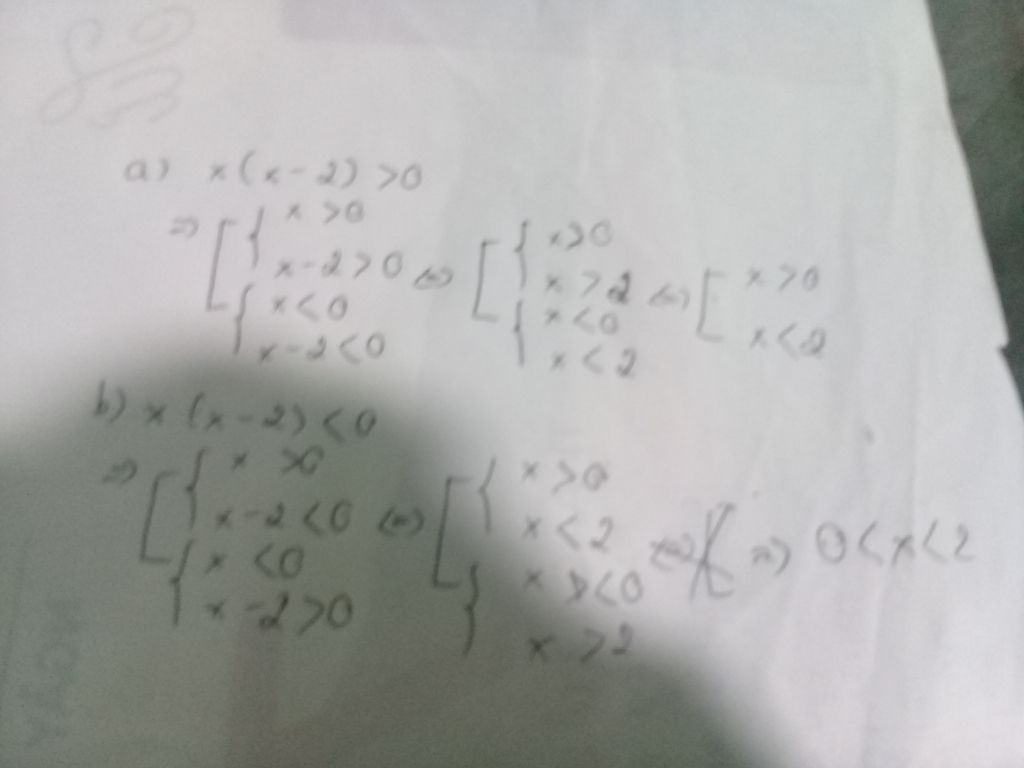 a) x(x-2) >0
=> [ { x >0
x-2>0 <=> [ { x>0
x >2 <=> [ x >0
{ x<0
x-2<0
{ x <0
x <2
x<2
b) x(x-2) <0
=> [ { x >0
x-2<0 <=> [ { x >0
x <2
{ x <0
x-2>0
{ x <0
x >2
=> 0<x<2